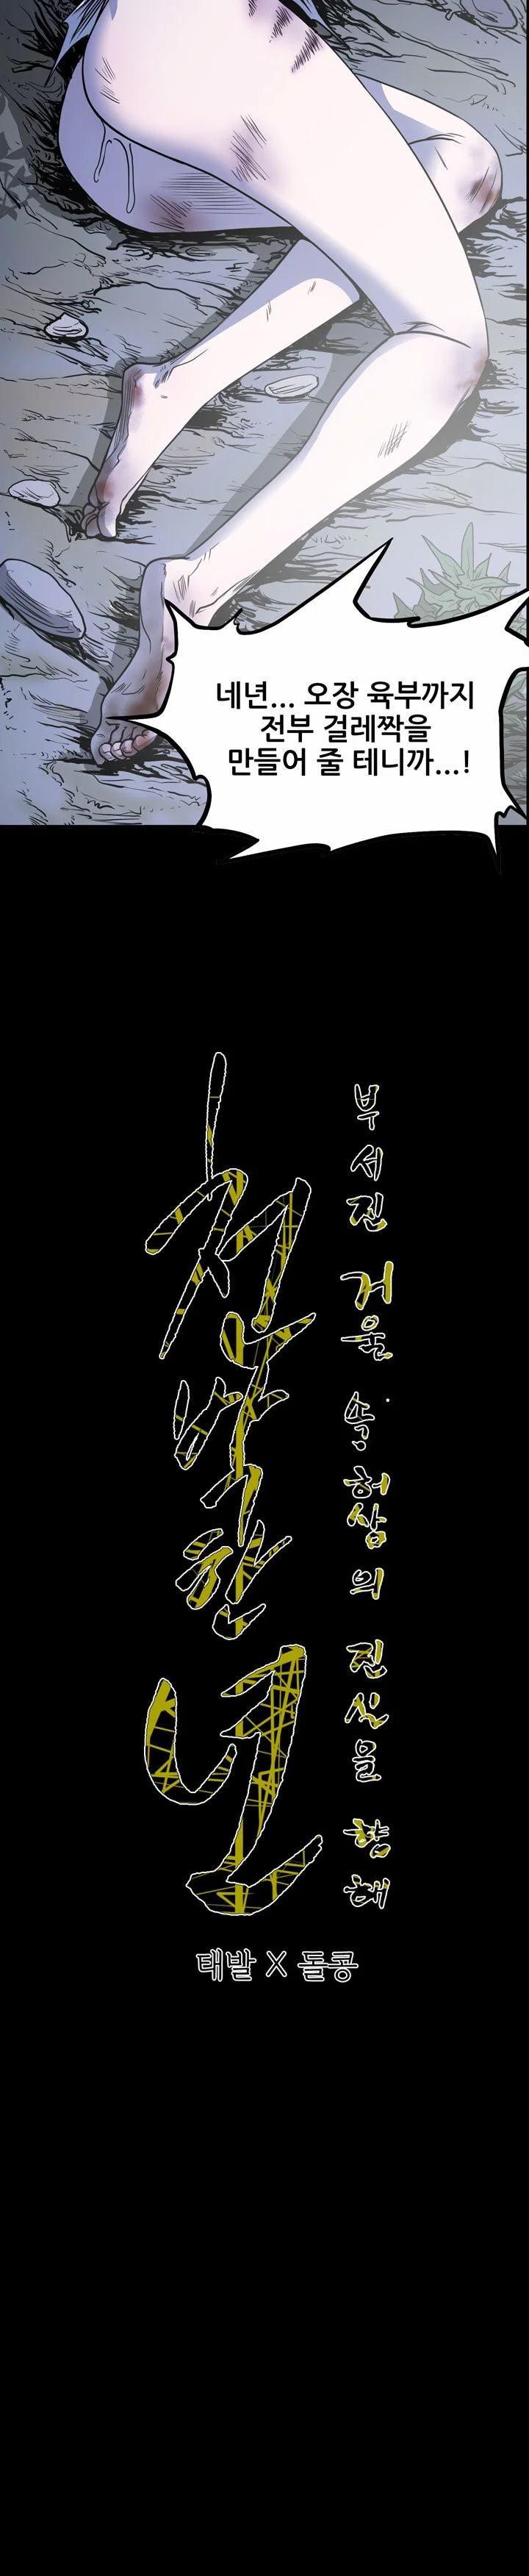 네년... 오장 육부까지
전부 걸레짝을
만들어 줄 테니까...!
부서진 거울 속 허상의 진실을 향해
천박한 년
태발 X 돌콩